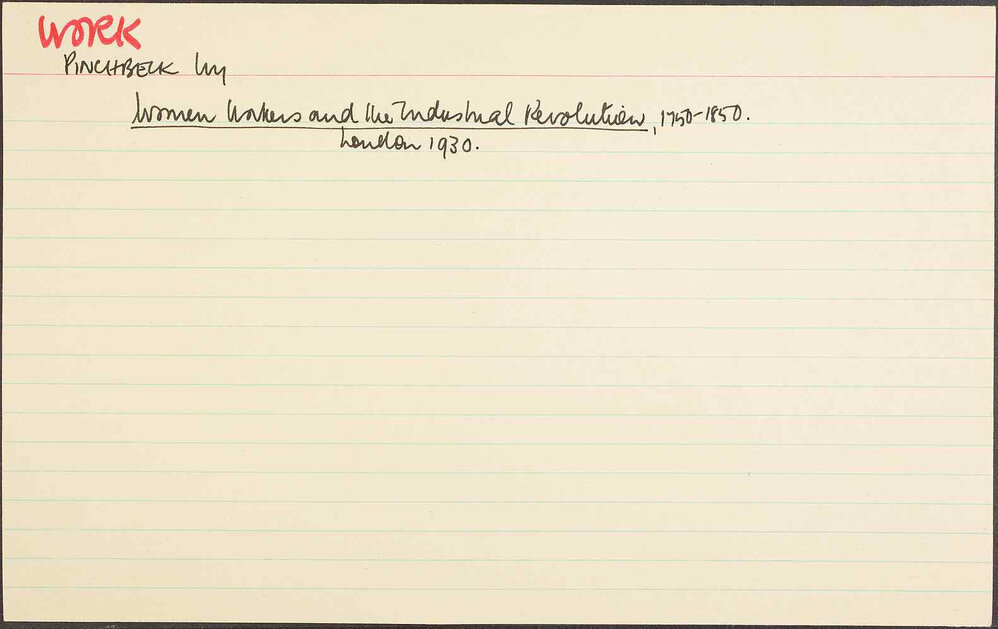 WORK
PINCHBECK Ivy
Women Workers and the Industrial Revolution, 1750-1850.
London 1930.